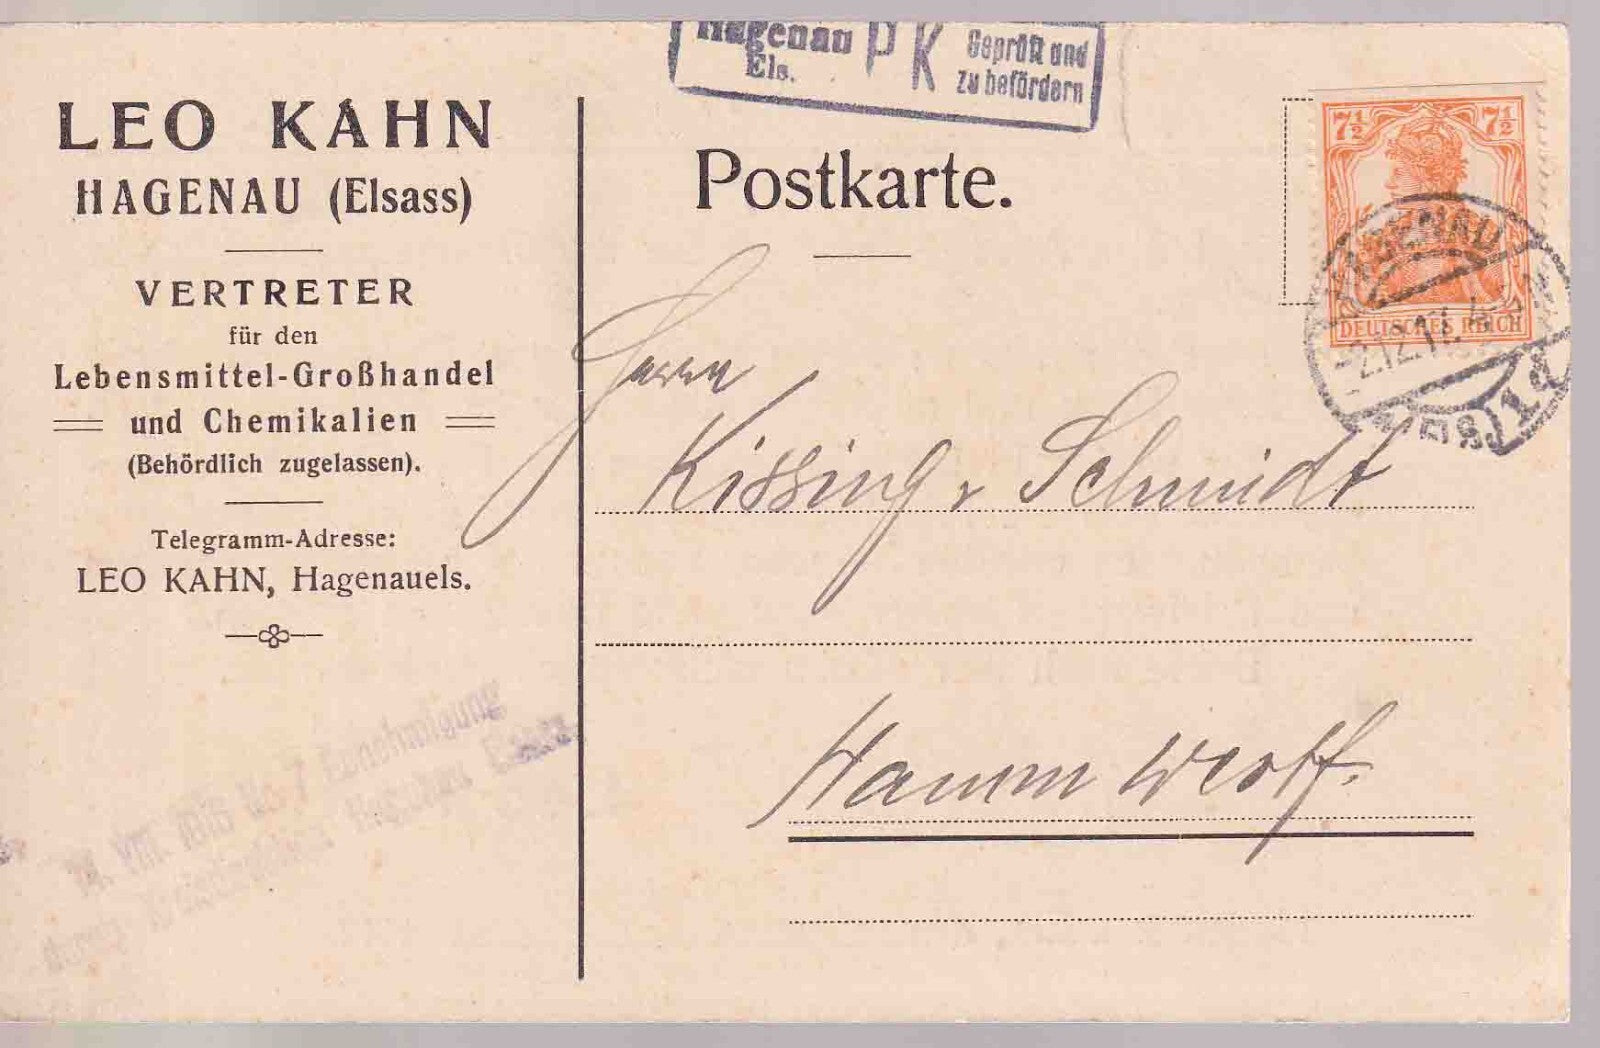 LEO KAHN
HAGENAU (Elsass)
VERTRETER
für den
Lebensmittel-Großhandel
und Chemikalien
(Behördlich zugelassen).
Telegramm-Adresse:
LEO KAHN, Hagenauels.
No. 7 Genehmigung
durch Kreisdirektion Hagenau Elsass.
Hagenau
Els.
P K
Geprüft und
zu befördern
Postkarte.
7½ 7½
DEUTSCHES REICH
HAGENAU
2.12.17. 4-5
(ELS) 1
Herrn
Kissing & Schmidt
Hamm Westf.